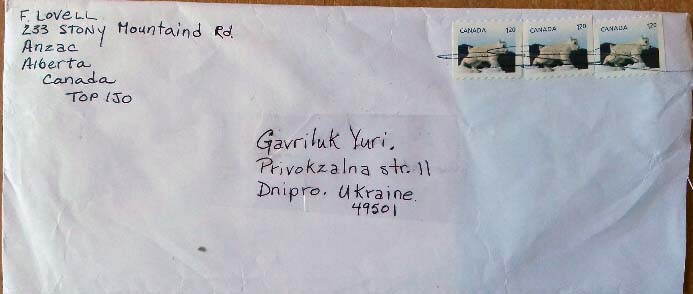 F. LOVELL
233 STONY Mountaind Rd.
Anzac
Alberta
Canada
TOP 1J0
CANADA 120
CANADA 120
CANADA 120
Gavriluk Yuri.
Privokzalna str. 11
Dnipro. Ukraine.
49501